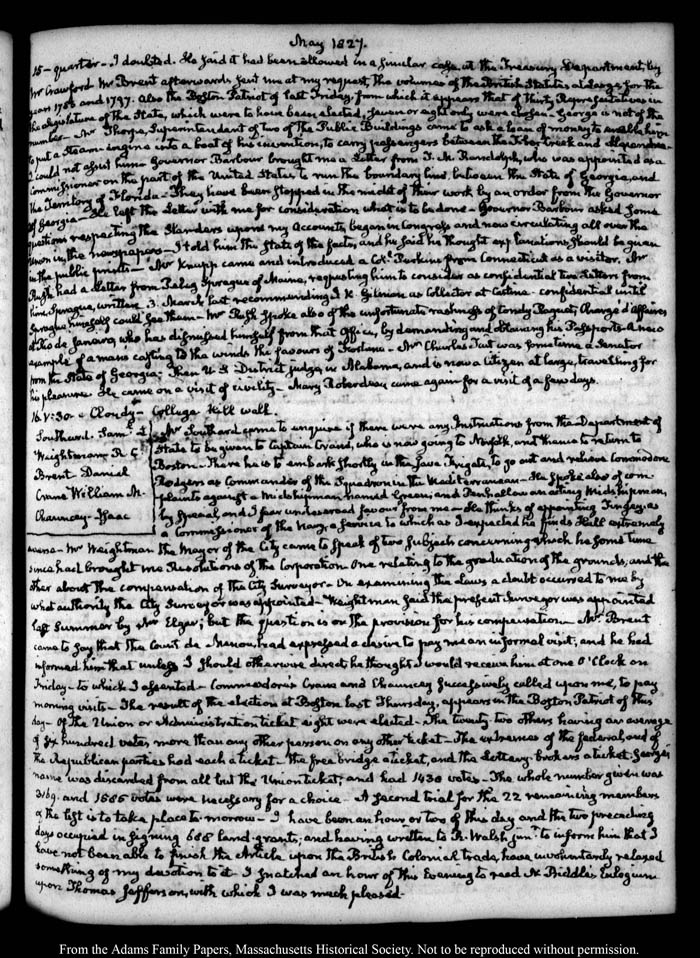 May 1827.
15 – quarter – I doubted. He said it had been allowed in a similar case at the Treasury Department, by
Mr Crawford Mr Brent afterwards sent me at my request, the volumes of the British Statutes at Large for the
years 1786 and 1797. Also the Boston Patriot of last Friday, from which it appears that of thirty Representatives in
the Legislature of the State, which were to have been elected, seven or eight only were chosen. George is not of the
number – Mr Thorpe, Superintendent of two of the Public Buildings came to ask a loan of money to enable him
to put a Steam-engine into a boat of his invention, to carry passengers between the Tiber Creek and Alexandria –
I could not assist him. Governor Barbour brought me a Letter from T. M. Randolph, who was appointed as a
Commissioner on the part of the United States to run the boundary line, between the State of Georgia, and
the Territory of Florida – They have been stopped in the midst of their work by an order from the Governor
of Georgia – He left the Letter with me for consideration what is to be done – Governor Barbour asked some
questions respecting the Slanders upon my Accounts, began in Congress and now circulating all over the
Union in the newspapers – I told him the State of the facts, and he said he thought explanations should be given
in the public prints – Mr Knapp came and introduced a Col. Perkins from Connecticut as a visitor. Mr
Rush had a Letter from Peleg Sprague of Maine, requesting him to consider as confidential two Letters from
him, Sprague, written 3. March last recommending I. K. Gilman as Collector at Castine – confidential until
Sprague himself could see them – Mr Rush spoke also of the unfortunate rashness of Condy Raguet, Chargé d'Affaires
at Rio de Janeiro, who has dismissed himself from that Office, by demanding and obtaining his Passports a new
example of a man casting to the winds the favours of Fortune – Mr Charles Tait was sometime a Senator
from the State of Georgia; Then U. S. District judge, in Alabama, and is now a Citizen at large, travelling for
his pleasure. He came on a visit of civility – Mary Roberdeau came again for a visit of a few days.
16. V: 30. Cloudy – College Hill walk.
Southard. Saml. L
Weightman R. C.
Brent – Daniel
Crane William M.
Chauncey – Isaac
Mr Southard came to enquire if there were any Instructions from the Department of
State to be given to Captain Crane, who is now going to Norfolk, and thence to return to
Boston – There he is to embark shortly in the Java frigate, to go out and relieve Commodore
Rodgers as Commander of the Squadron in the Mediterranean – He spoke also of com-
plaints against a Midshipman named and Penhallow an acting Midshipman,
by special, and I fear undeserved favour from me – He thinks of appointing Tingey, as
a Commissioner of the Navy, a service to which as I expected he finds Hull extremely
averse – Mr Weightman the Mayor of the City came to speak of two subjects concerning which he some time
since had brought me Resolutions of the Corporation One relating to the graduation of the grounds; and the
other about the compensation of the City Surveyor – On examining the Laws a doubt occurred to me by
what authority the City Surveyor was appointed – Weightman said the present Surveyor was appointed
last Summer by Mr Elgar; but the question is on the provision for his compensation – Mr Brent
came to say that the Count de Menou, had expressed a desire to pay me an informal visit, and he had
informed him that unless I should otherwise direct he thought I would receive him at one O'Clock on
Friday – to which I assented – Commodores Crane and Chauncey successively called upon me, to pay
morning visits – The result of the election at Boston last Thursday, appears in the Boston Patriot of this
day – Of the Union or Administration ticket eight were elected – The twenty two others having an average
of six hundred votes more than any other person on any other ticket – The extremes of the federal, and of
the Republican parties had each a ticket – the free bridge a ticket, and the Lottery-brokers a ticket, George's
name was discarded from all but the Union ticket, and had 1430 votes – The whole number given was
3169. and 1585 votes were necessary for a choice – A second trial for the 22 remaining members
of the list is to take place to-morrow – I have been an hour or two of this day and the two preceding
days occupied in signing 666 land-grants; and having written to R. Walsh junr. to inform him that I
have not been able to finish the Article upon the British Colonial trade, have involuntarily relaxed
something of my devotion to it – I snatched an hour of this Evening to read N. Biddle's Eulogium
upon Thomas Jefferson, with which I was much pleased –
From the Adams Family Papers, Massachusetts Historical Society. Not to be reproduced without permission.